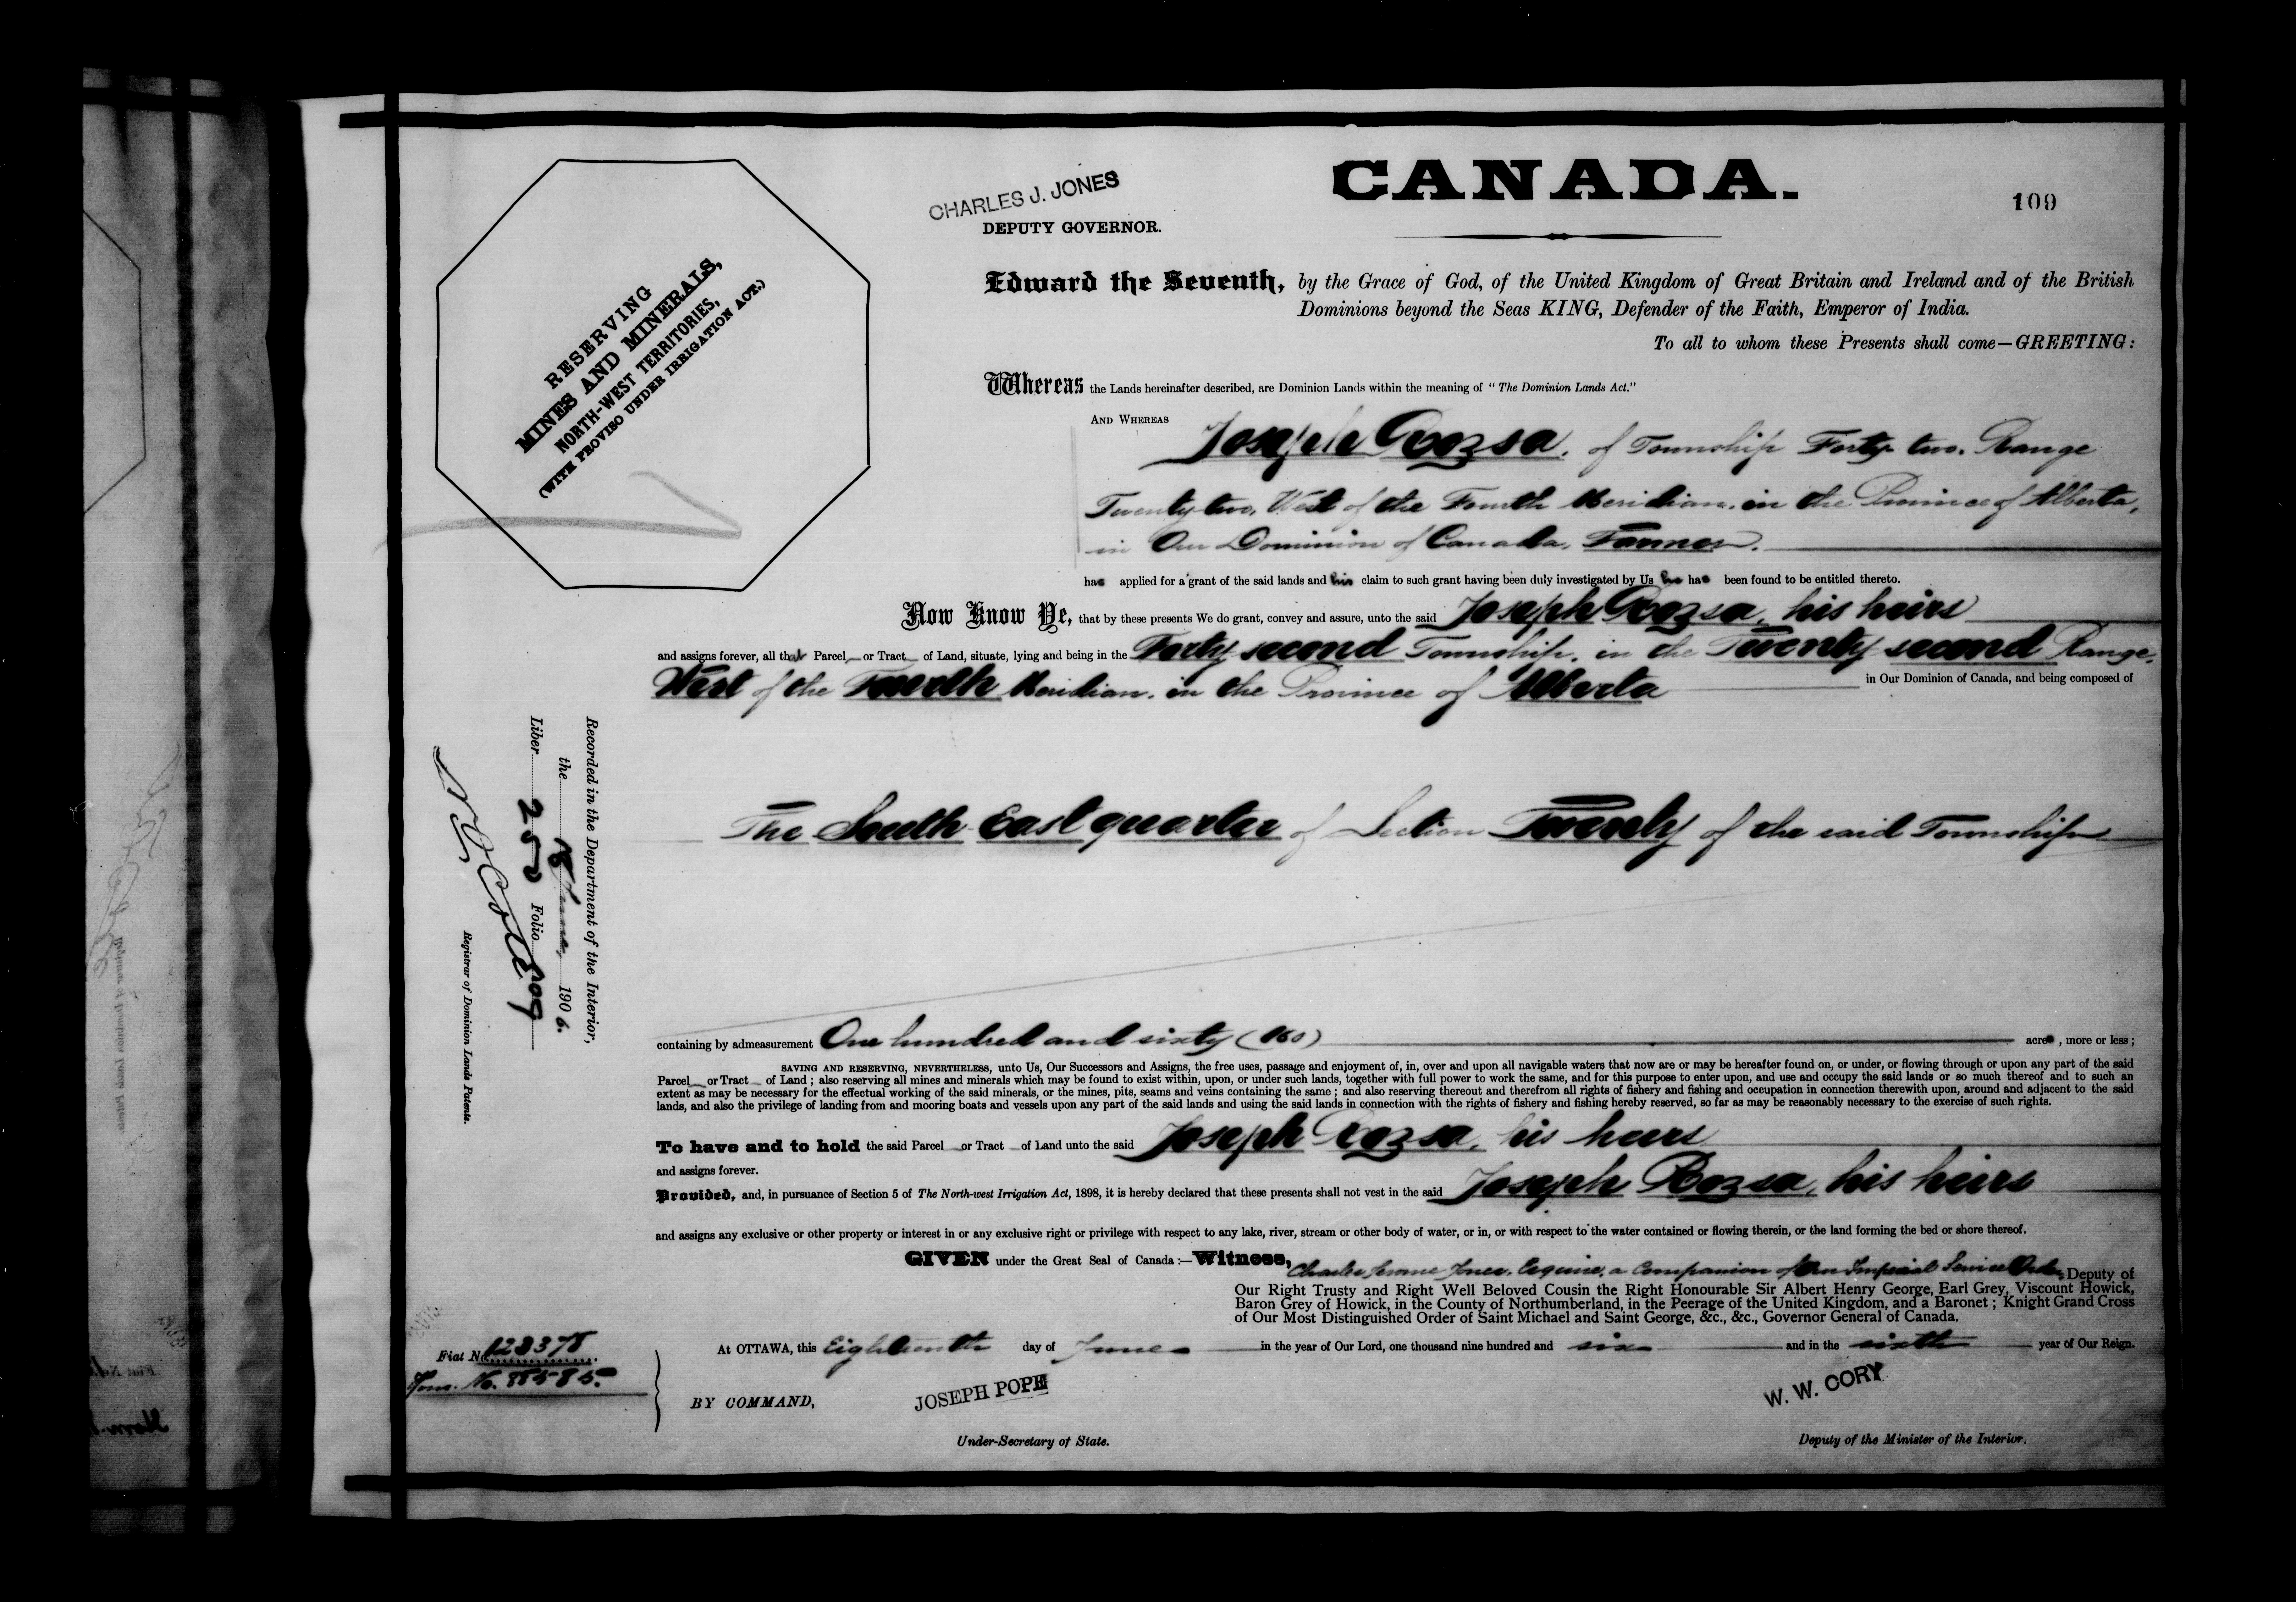 CANADA.
109
CHARLES J. JONES
DEPUTY GOVERNOR.
RESERVING
MINES AND MINERALS,
NORTH-WEST TERRITORIES,
(WITH PROVISO UNDER IRRIGATION ACT.)
Edward the Seventh, by the Grace of God, of the United Kingdom of Great Britain and Ireland and of the British
Dominions beyond the Seas KING, Defender of the Faith, Emperor of India.
To all to whom these Presents shall come—GREETING:
Whereas the Lands hereinafter described, are Dominion Lands within the meaning of "The Dominion Lands Act."
AND WHEREAS Joseph Rozsa, of Township Forty-two, Range
Twenty-two, West of the Fourth Meridian, in the Province of Alberta,
in Our Dominion of Canada, Farmer.
has applied for a grant of the said lands and his claim to such grant having been duly investigated by Us he has been found to be entitled thereto.
Now Know Ye, that by these presents We do grant, convey and assure, unto the said Joseph Rozsa, his heirs
and assigns forever, all that Parcel or Tract of Land, situate, lying and being in the Forty-second Township, in the Twenty-second Range,
West of the Fourth Meridian, in the Province of Alberta in Our Dominion of Canada, and being composed of
The South East quarter of Section Twenty of the said Township
containing by admeasurement One hundred and sixty (160) acres, more or less;
SAVING AND RESERVING, NEVERTHELESS, unto Us, Our Successors and Assigns, the free uses, passage and enjoyment of, in, over and upon all navigable waters that now are or may be hereafter found on, or under, or flowing through or upon any part of the said
Parcel or Tract of Land; also reserving all mines and minerals which may be found to exist within, upon, or under such lands, together with full power to work the same, and for this purpose to enter upon, and use and occupy the said lands or so much thereof and to such an
extent as may be necessary for the effectual working of the said minerals, or the mines, pits, seams and veins containing the same; and also reserving thereout and therefrom all rights of fishery and fishing and occupation in connection therewith upon, around and adjacent to the said
lands, and also the privilege of landing from and mooring boats and vessels upon any part of the said lands and using the said lands in connection with the rights of fishery and fishing hereby reserved, so far as may be reasonably necessary to the exercise of such rights.
To have and to hold the said Parcel or Tract of Land unto the said Joseph Rozsa, his heirs
and assigns forever.
Provided, and, in pursuance of Section 5 of The North-west Irrigation Act, 1898, it is hereby declared that these presents shall not vest in the said Joseph Rozsa, his heirs
and assigns any exclusive or other property or interest in or any exclusive right or privilege with respect to any lake, river, stream or other body of water, or in, or with respect to the water contained or flowing therein, or the land forming the bed or shore thereof.
GIVEN under the Great Seal of Canada:—Witness, Charles Jerome Jones, Esquire, a Companion of Our Imperial Service Order, Deputy of
Our Right Trusty and Right Well Beloved Cousin the Right Honourable Sir Albert Henry George, Earl Grey, Viscount Howick,
Baron Grey of Howick, in the County of Northumberland, in the Peerage of the United Kingdom, and a Baronet; Knight Grand Cross
of Our Most Distinguished Order of Saint Michael and Saint George, &c., &c., Governor General of Canada.
At OTTAWA, this Eighteenth day of June in the year of Our Lord, one thousand nine hundred and six and in the sixth year of Our Reign.
BY COMMAND,
JOSEPH POPE
Under-Secretary of State.
W. W. CORY
Deputy of the Minister of the Interior.
Fiat No. 128378
Hom. No. 88585
Recorded in the Department of the Interior,
the 18 June, 1906.
Liber 250 Folio 109
Registrar of Dominion Lands Patents.